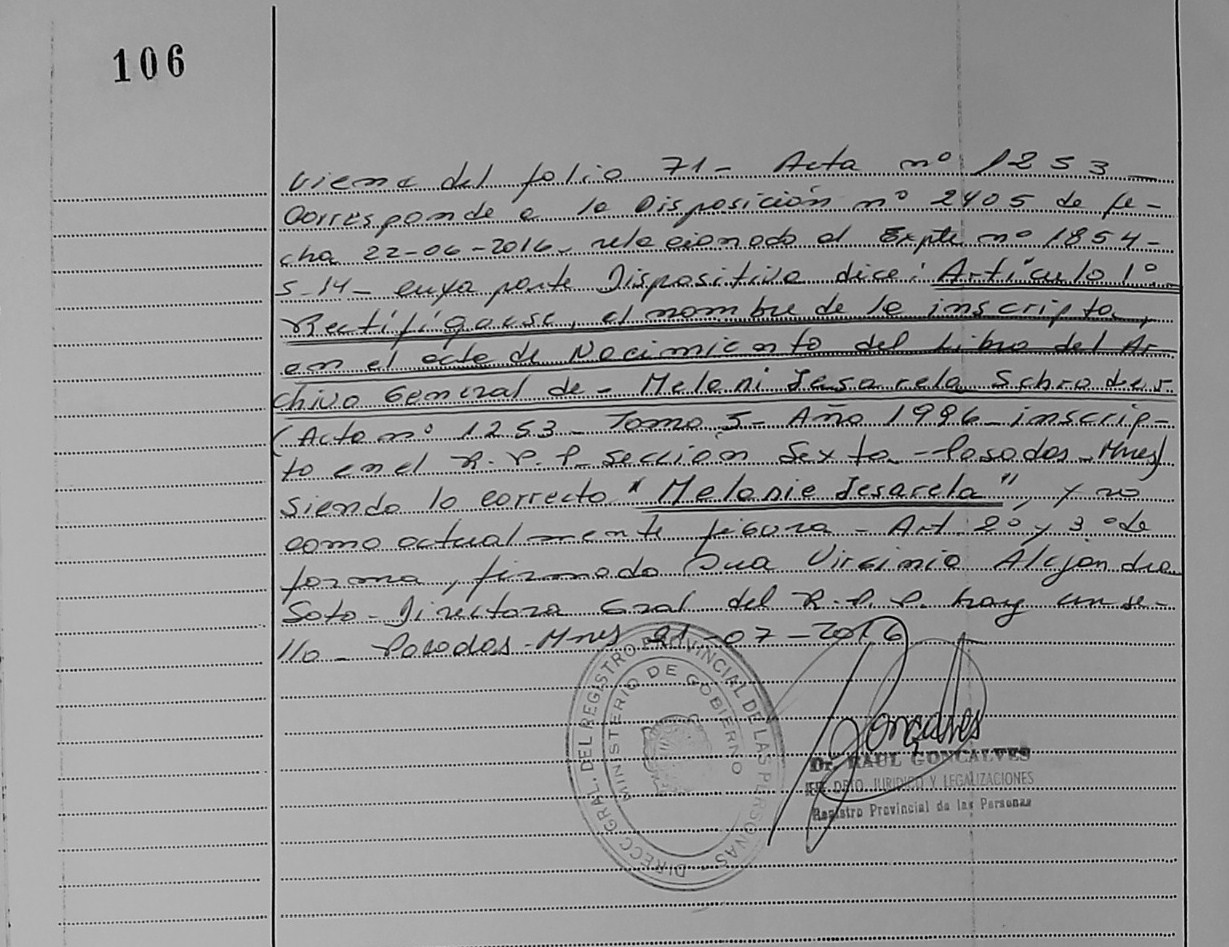 106
Viene del folio 71- Acta nº 1253
Corresponde a la Disposición nº 2405 de fe-
cha 22-06-2016, relacionado al Expte nº 1854-
S-14- cuya parte Dispositiva dice: Artículo 1º
Rectifíquese, el nombre de la inscripta,
en el acta de Nacimiento del Libro del Ar-
chivo General de - Meleni Jesarela Schroder
(Acta nº 1253- Tomo 5- Año 1996- inscrip-
to en el R.P.P- sección Sexta -Posadas-Mnes)
Siendo lo correcto "Melanie Jesarela", y no
como actualmente figura - Art. 2º y 3º de
forma, firmado Dra Virginia Alejandra
Soto- Directora Gral del R.P.P. hay un se-
llo - Posadas-Mnes 21-07-2016
DIRECC. GRAL. DEL REGISTRO PROVINCIAL DE LAS PERSONAS
MINISTERIO DE GOBIERNO
Gonçalves
Dr. RAUL GONCALVES
DPTO. JURIDICO Y LEGALIZACIONES
Registro Provincial de las Personas